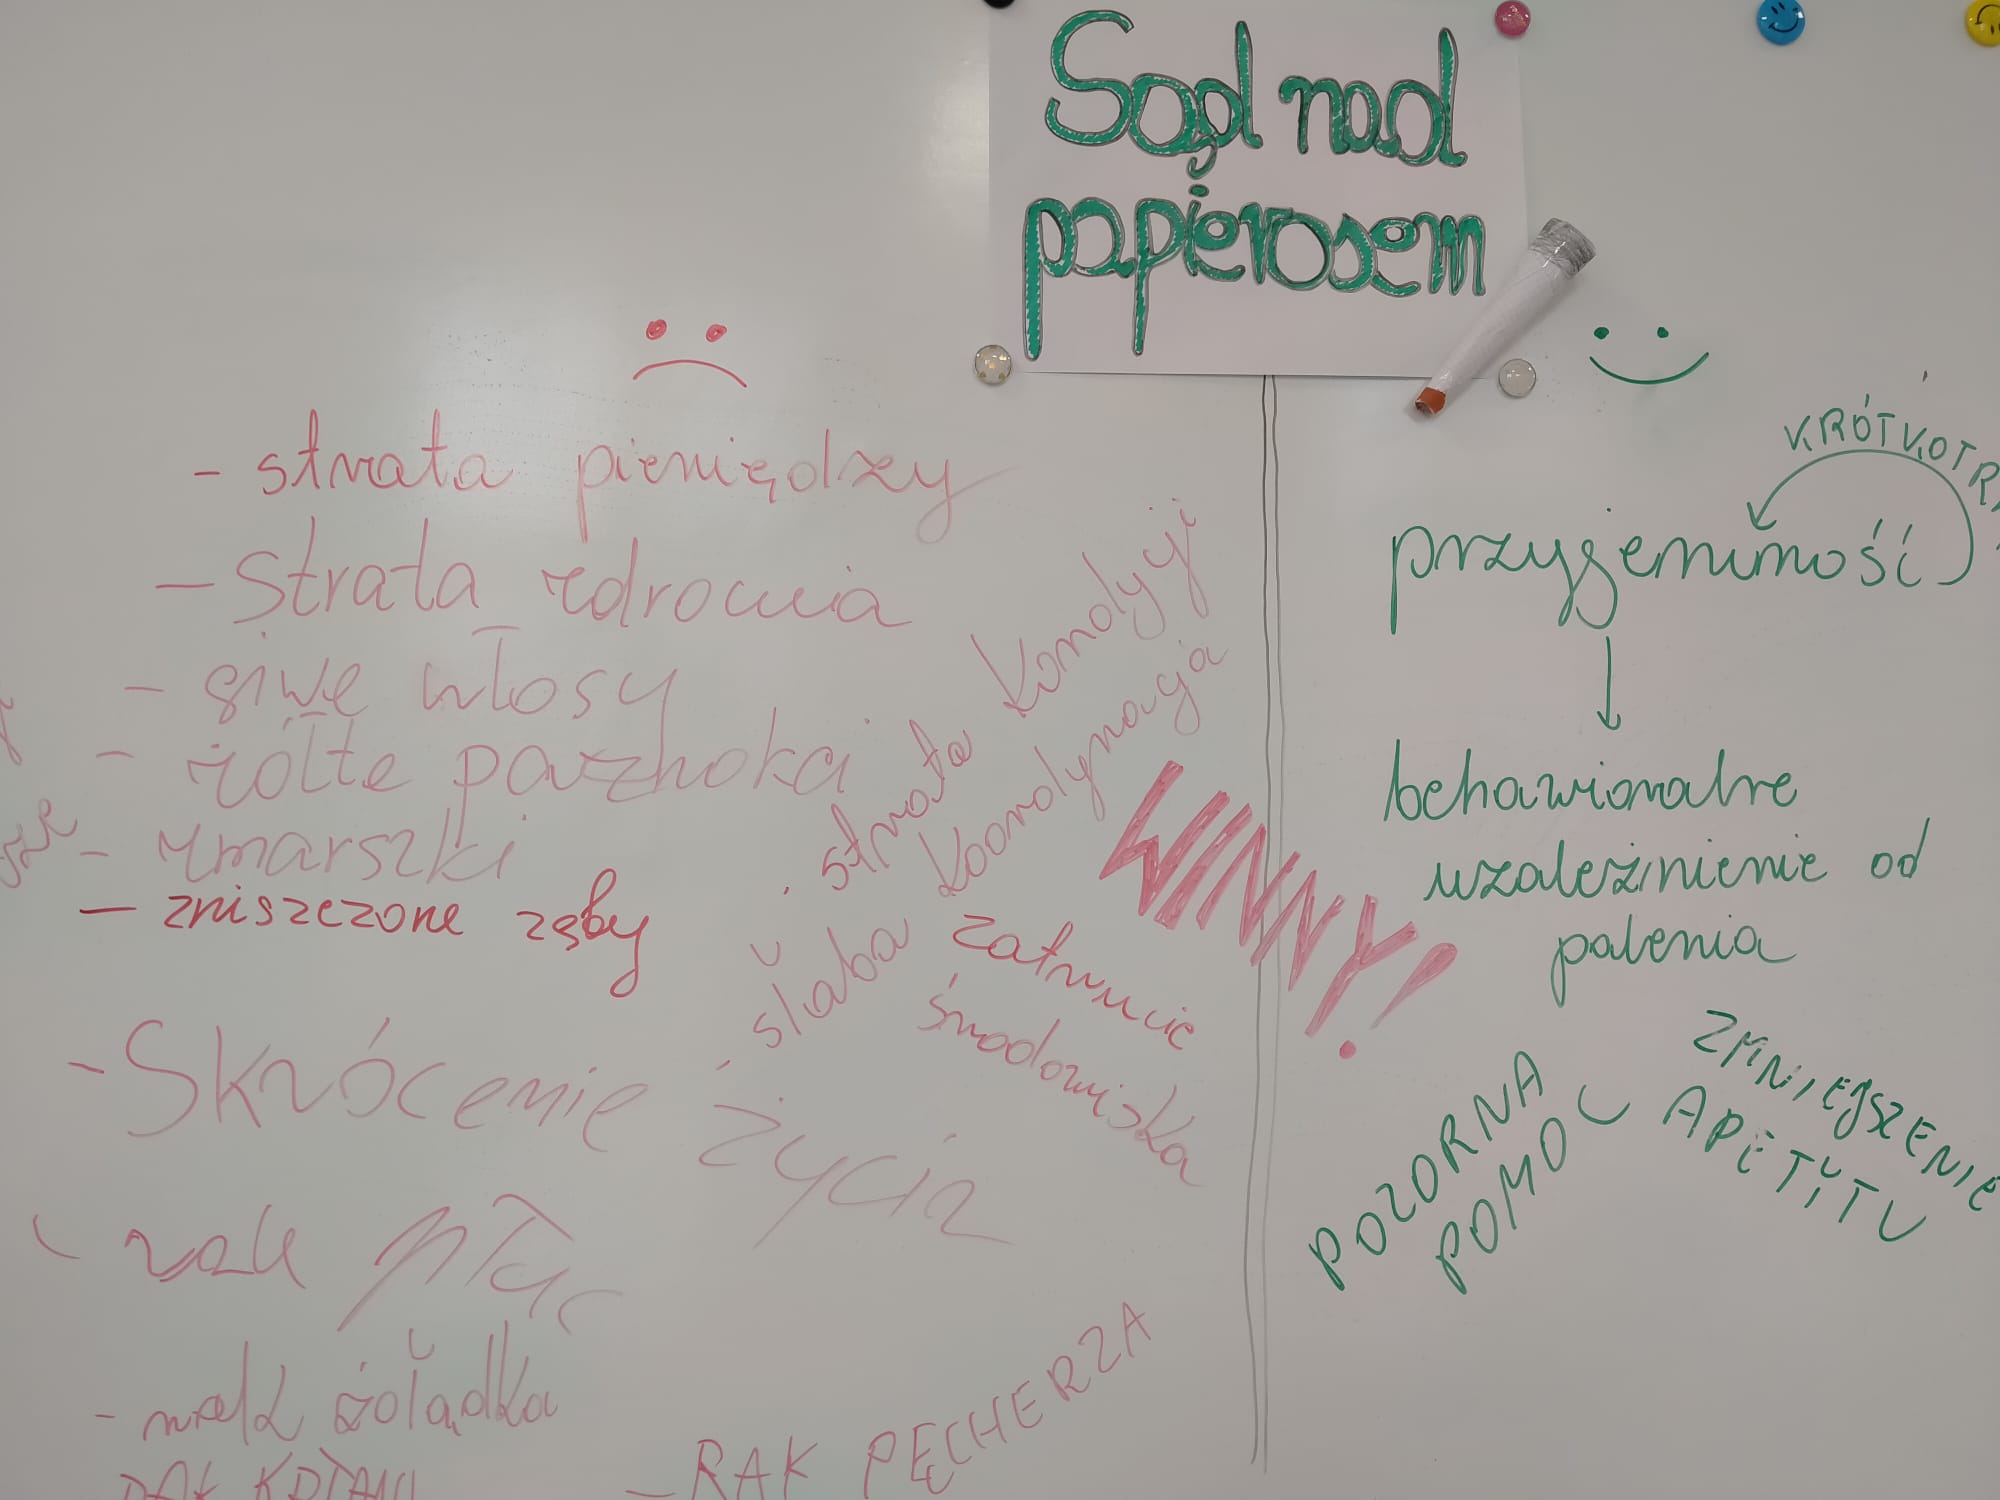 Sąd nad
papierosem
- strata pieniędzy
- Strata zdrowia
- siwe włosy
- żółte paznokcia
- zmarszki
- zniszczone zęby
- Skrócenie życia
- rak płuc
- rak żołądka
RAK KRTANI
- RAK PĘCHERZA
- strata kondycji
- słaba koordynacja
zatrucie
środowiska
WINNY!
przyjemność
behawioralne
uzależnienie od
palenia
POZORNA
POMOC
ZMNIEJSZENIE
APETYTU